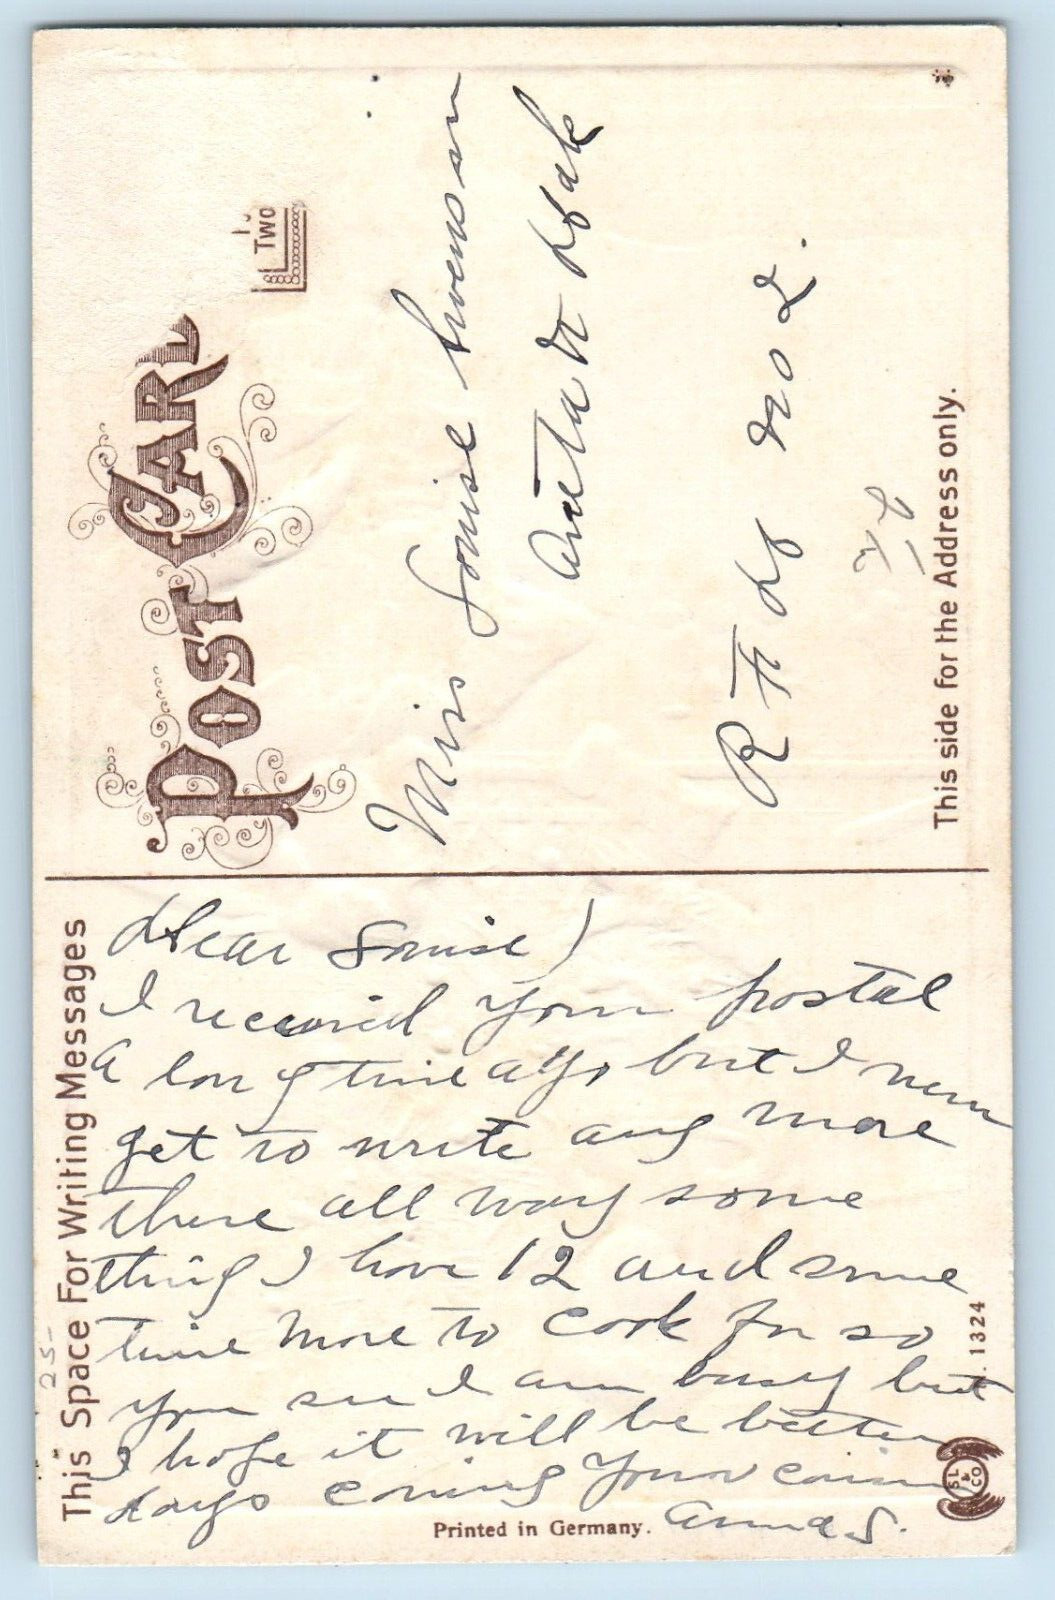 This Space For Writing Messages
25-
Dear Louise)
I received your postal
a long time ago but I never
get to write any more
there all way some
thing I have 12 and some
time more to cook for so
you see I am busy but
I hope it will be better
days coming your cousin
Anna S.
Printed in Germany.
1324
SL & CO
POST CARD
TWO
Miss Louise Swenson
Aneta N Dak
R F D No 2.
This side for the Address only.